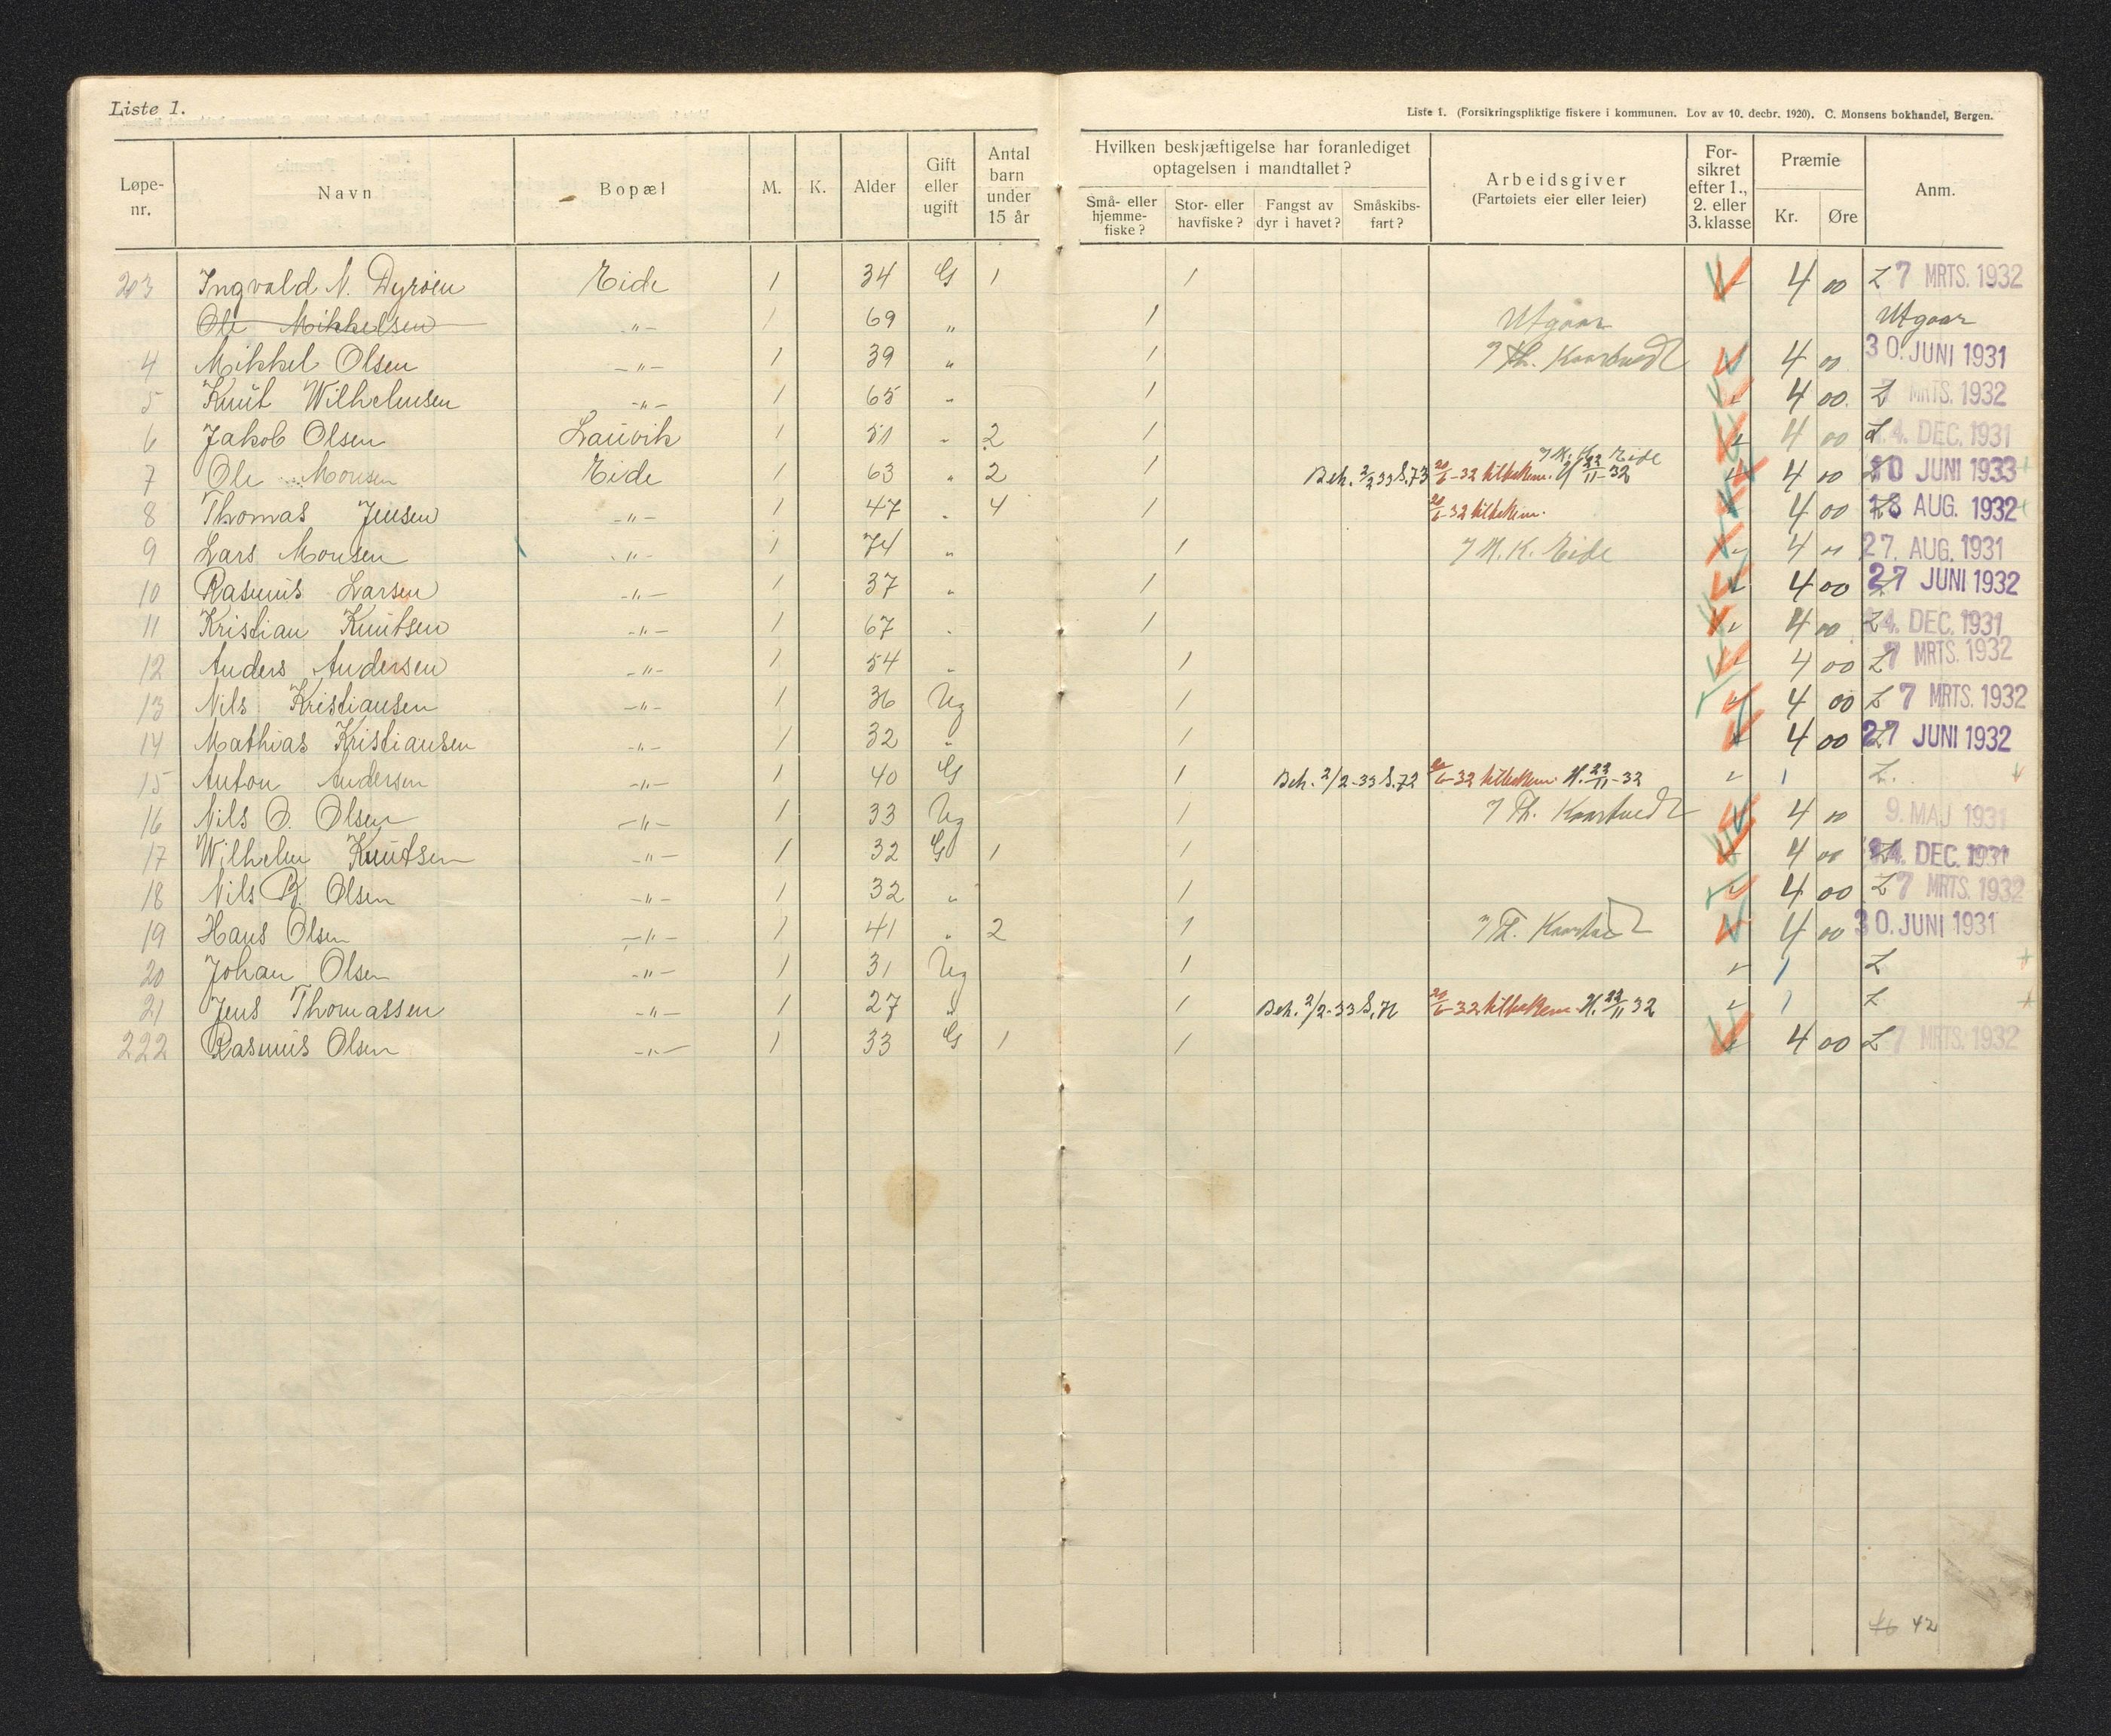 Liste 1.
Liste 1. (Forsikringspliktige fiskere i kommunen. Lov av 10. decbr. 1920). C. Monsens bokhandel, Bergen.
Løpe-nr. Navn Bopæl M. K. Alder Gift eller ugift Antal barn under 15 år Hvilken beskjæftigelse har foranlediget optagelsen i mandtallet? Små- eller hjemme-fiske? Stor- eller havfiske? Fangst av dyr i havet? Småskibs-fart? Arbeidsgiver (Fartøiets eier eller leier) For-sikret efter 1., 2. eller 3. klasse Præmie Kr. Øre Anm.
203 Ingvald N. Dyrøien Eide 1 34 G 1 1 4 00 Z 7 MRTS. 1932
Ole Mikkelsen -"- 1 69 " 1 Utgaar Utgaar
4 Mikkel Olsen -"- 1 39 " 1 Th. Kaartvedt 4 00 30. JUNI 1931
5 Knut Wilhelmsen -"- 1 65 " 1 4 00 7 MRTS. 1932
6 Jakob Olsen Lauvik 1 51 " 2 1 4 00 14. DEC. 1931
M. K. Eide
7 Ole Monsen Eide 1 63 " 2 1 Beh. 2/2 33 S. 73 20/6-32 tilbakem. 22/11-32 4 00 10 JUNI 1933 +
8 Thomas Jensen -"- 1 47 " 4 1 20/6-32 tilbakem. 4 00 18 AUG. 1932 +
9 Lars Monsen -"- 1 74 " 1 M. K. Eide 4 " 27. AUG. 1931
10 Rasmus Larsen -"- 1 37 " 1 4 00 27 JUNI 1932
11 Kristian Knutsen -"- 1 67 " 1 4 00 Z 14. DEC. 1931
12 Anders Andersen -"- 1 54 " 1 4 00 Z 7 MRTS. 1932
13 Nils Kristiansen -"- 1 36 Ug 1 4 00 Z 7 MRTS. 1932
14 Mathias Kristiansen -"- 1 32 " 1 4 00 27 JUNI 1932
15 Anton Andersen -"- 1 40 G 1 Beh. 2/2-33 S. 72 20/6-32 tilbakem. H. 22/11-32 1 Z. +
16 Nils O. Olsen -"- 1 33 Ug 1 Th. Kaartvedt 4 00 9. MAJ 1931
17 Wilhelm Knutsen -"- 1 32 G 1 1 4 00 14. DEC. 1931
18 Nils R. Olsen -"- 1 32 " 1 4 00 Z 7 MRTS. 1932
19 Hans Olsen -"- 1 41 " 2 1 Th. Kaartvedt 4 00 30. JUNI 1931
20 Johan Olsen -"- 1 31 Ug 1 1 Z +
21 Jens Thomassen -"- 1 27 " 1 Beh. 2/2-33 S. 71 20/6-32 tilbakem H. 22/11 32 1 Z +
222 Rasmus Olsen -"- 1 33 G 1 1 4 00 Z 7 MRTS. 1932
42